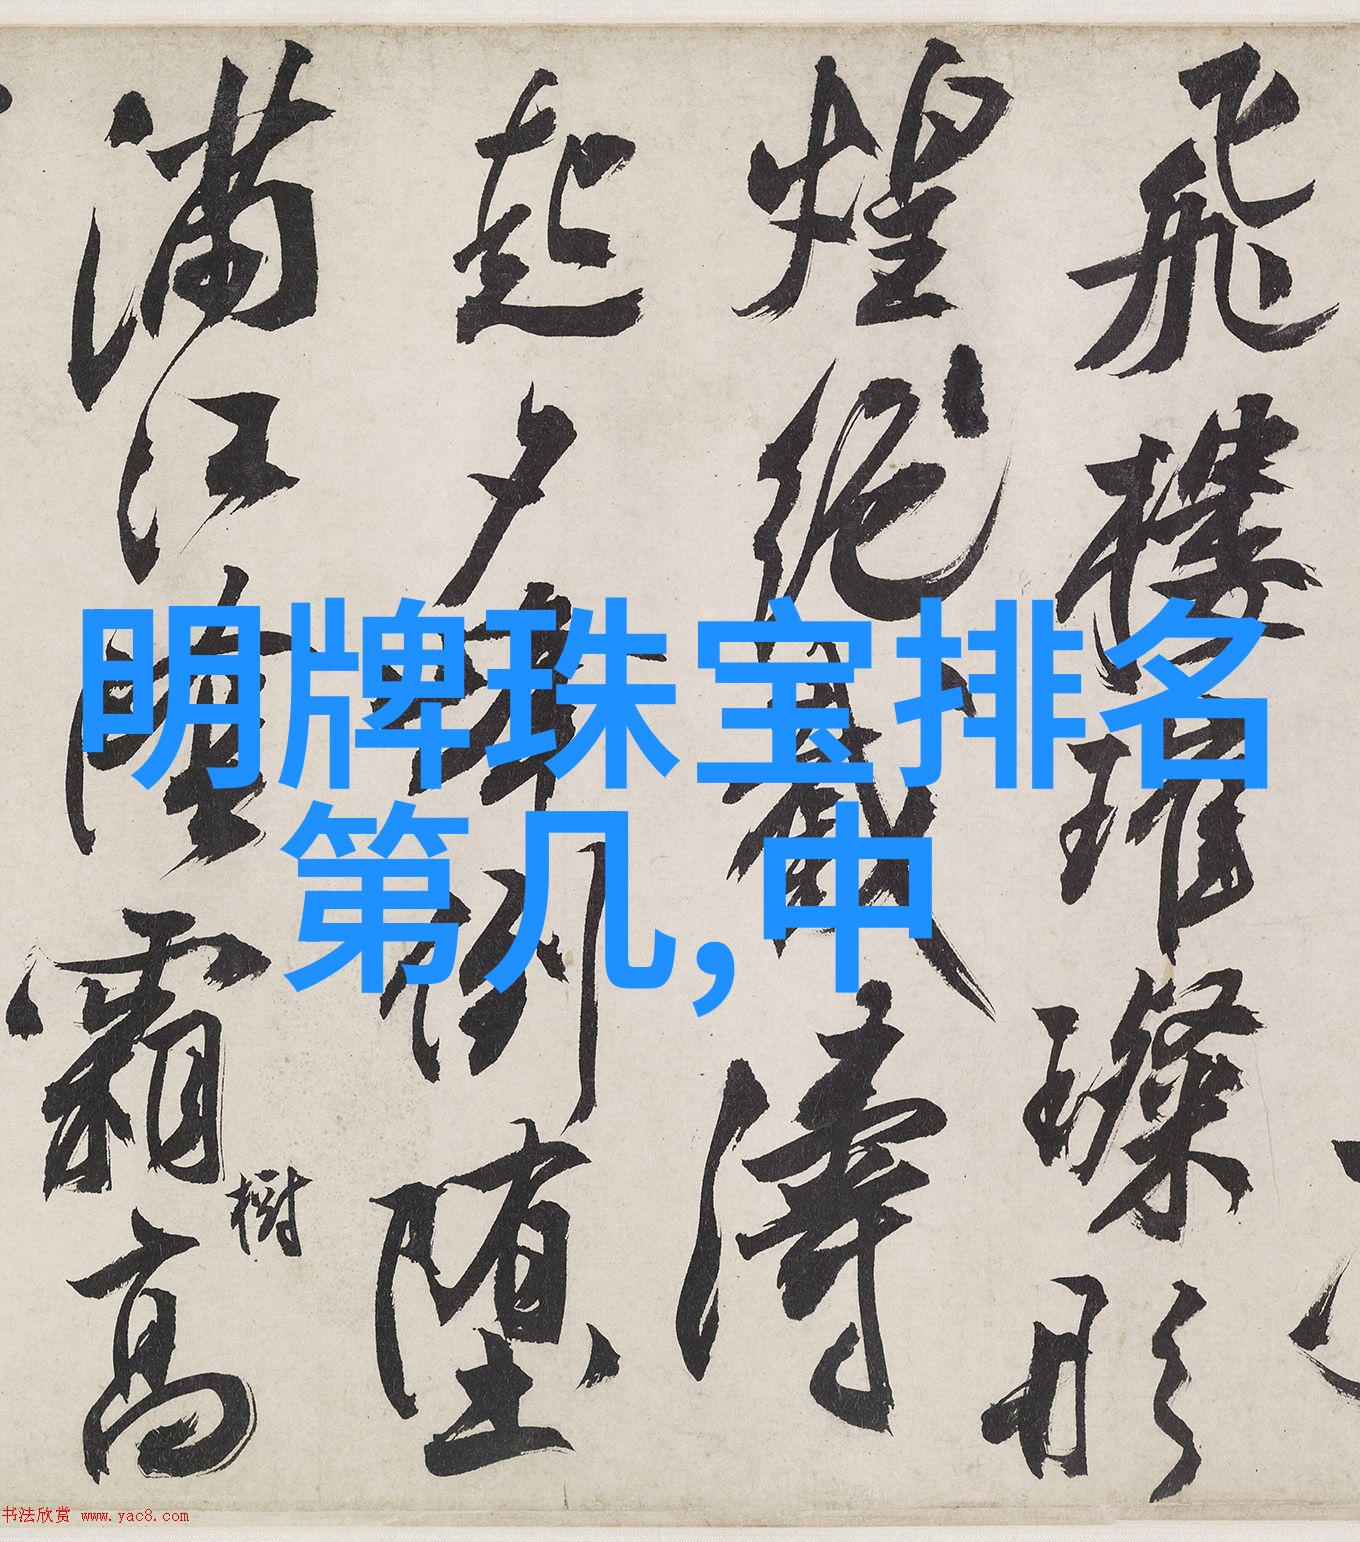 明牌珠宝排名
第几,中
飛樓璀璨形
煌絕截濤
起夕倒墮
滿江霜高
樹
书法欣赏 www.yac8.com